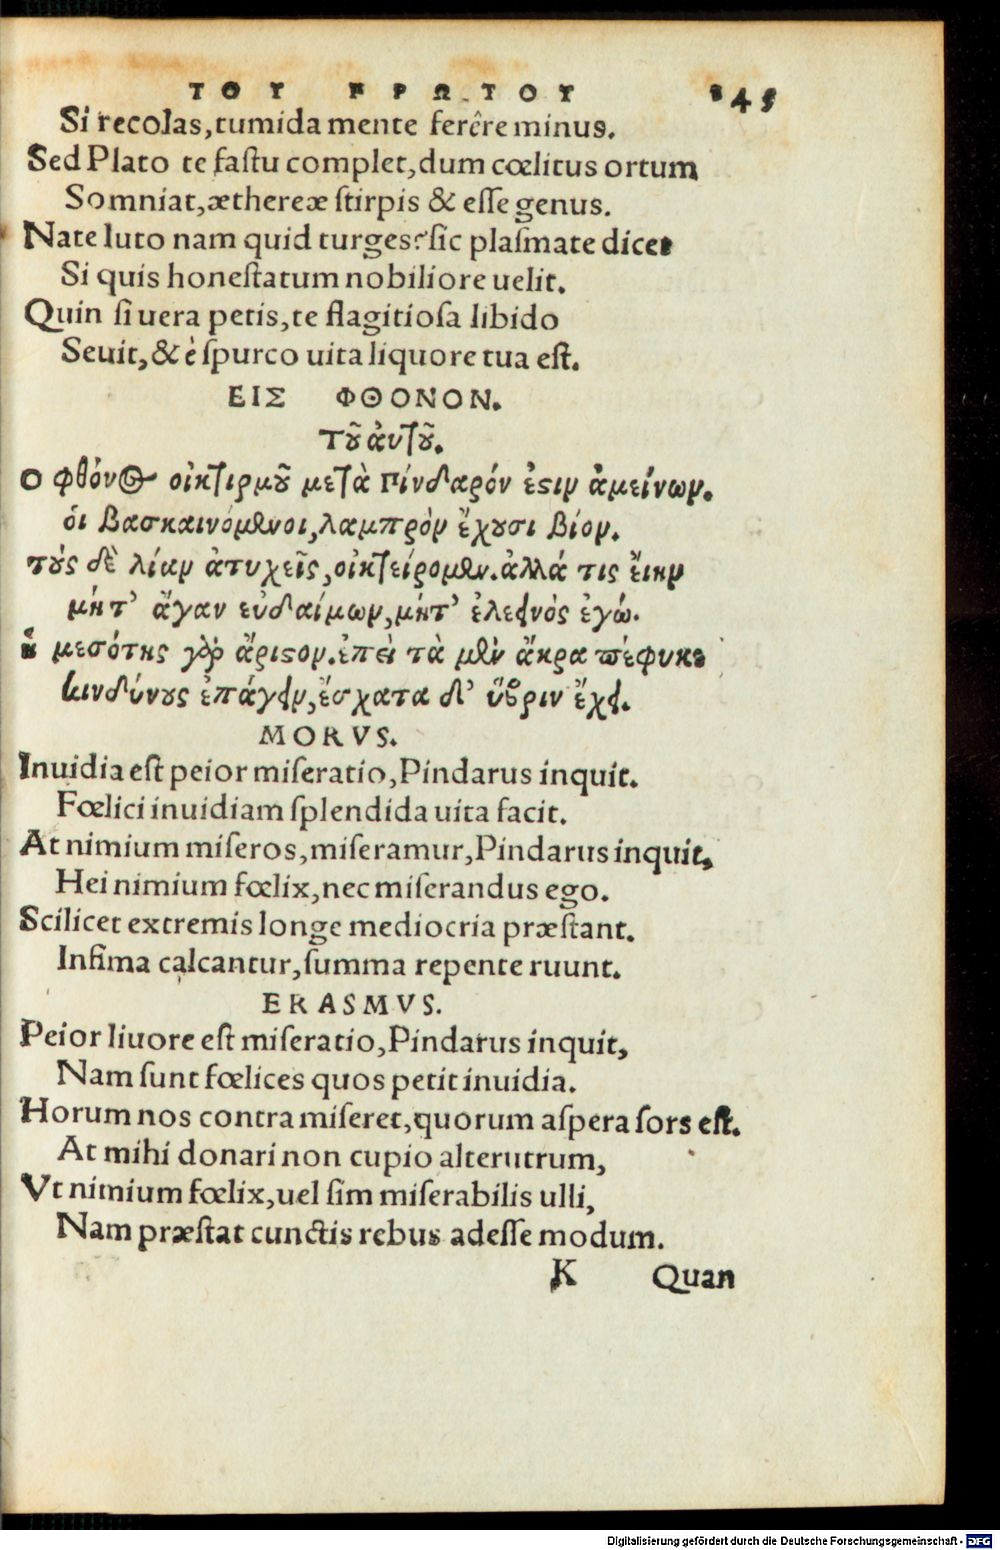 ΤΟΥ ΠΡΩΤΟΥ 145
Si recolas, tumida mente ferêre minus.
Sed Plato te fastu complet, dum cœlitus ortum
Somniat, æthereæ stirpis & esse genus.
Nate luto nam quid turges? sic plasmate dicet
Si quis honestatum nobiliore uelit.
Quin si uera petis, te flagitiosa libido
Seuit, & è spurco uita liquore tua est.
ΕΙΣ ΦΘΟΝΟΝ.
Τοῦ ἀυτοῦ.
Ο φθόνος οἰκτιρμοῦ μετὰ Πίνδαρόν ἐστιν ἀμείνων.
ὁι βασκαινόμενοι, λαμπρὸν ἔχουσι βίον.
τοὺς δὲ λίαν ἀτυχεῖς, οἰκτείρομεν. ἀλλά τις ἔιην
μήτ’ ἄγαν εὐδαίμων, μήτ’ ἐλεεινὸς ἐγώ.
ἡ μεσότης γὰρ ἄριστον. ἐπεὶ τὰ μὲν ἄκρα πέφυκε
κινδύνους ἐπάγειν, ἔσχατα δ’ ὕβριν ἔχει.
MORVS.
Inuidia est peior miseratio, Pindarus inquit.
Fœlici inuidiam splendida uita facit.
At nimium miseros, miseramur, Pindarus inquit,
Hei nimium fœlix, nec miserandus ego.
Scilicet extremis longe mediocria præstant.
Infima calcantur, summa repente ruunt.
ERASMVS.
Peior liuore est miseratio, Pindarus inquit,
Nam sunt fœlices quos petit inuidia.
Horum nos contra miseret, quorum aspera sors est.
At mihi donari non cupio alterutrum,
Vt nimium fœlix, uel sim miserabilis ulli,
Nam præstat cunctis rebus adesse modum.
K Quan
Digitalisierung gefördert durch die Deutsche Forschungsgemeinschaft - DFG